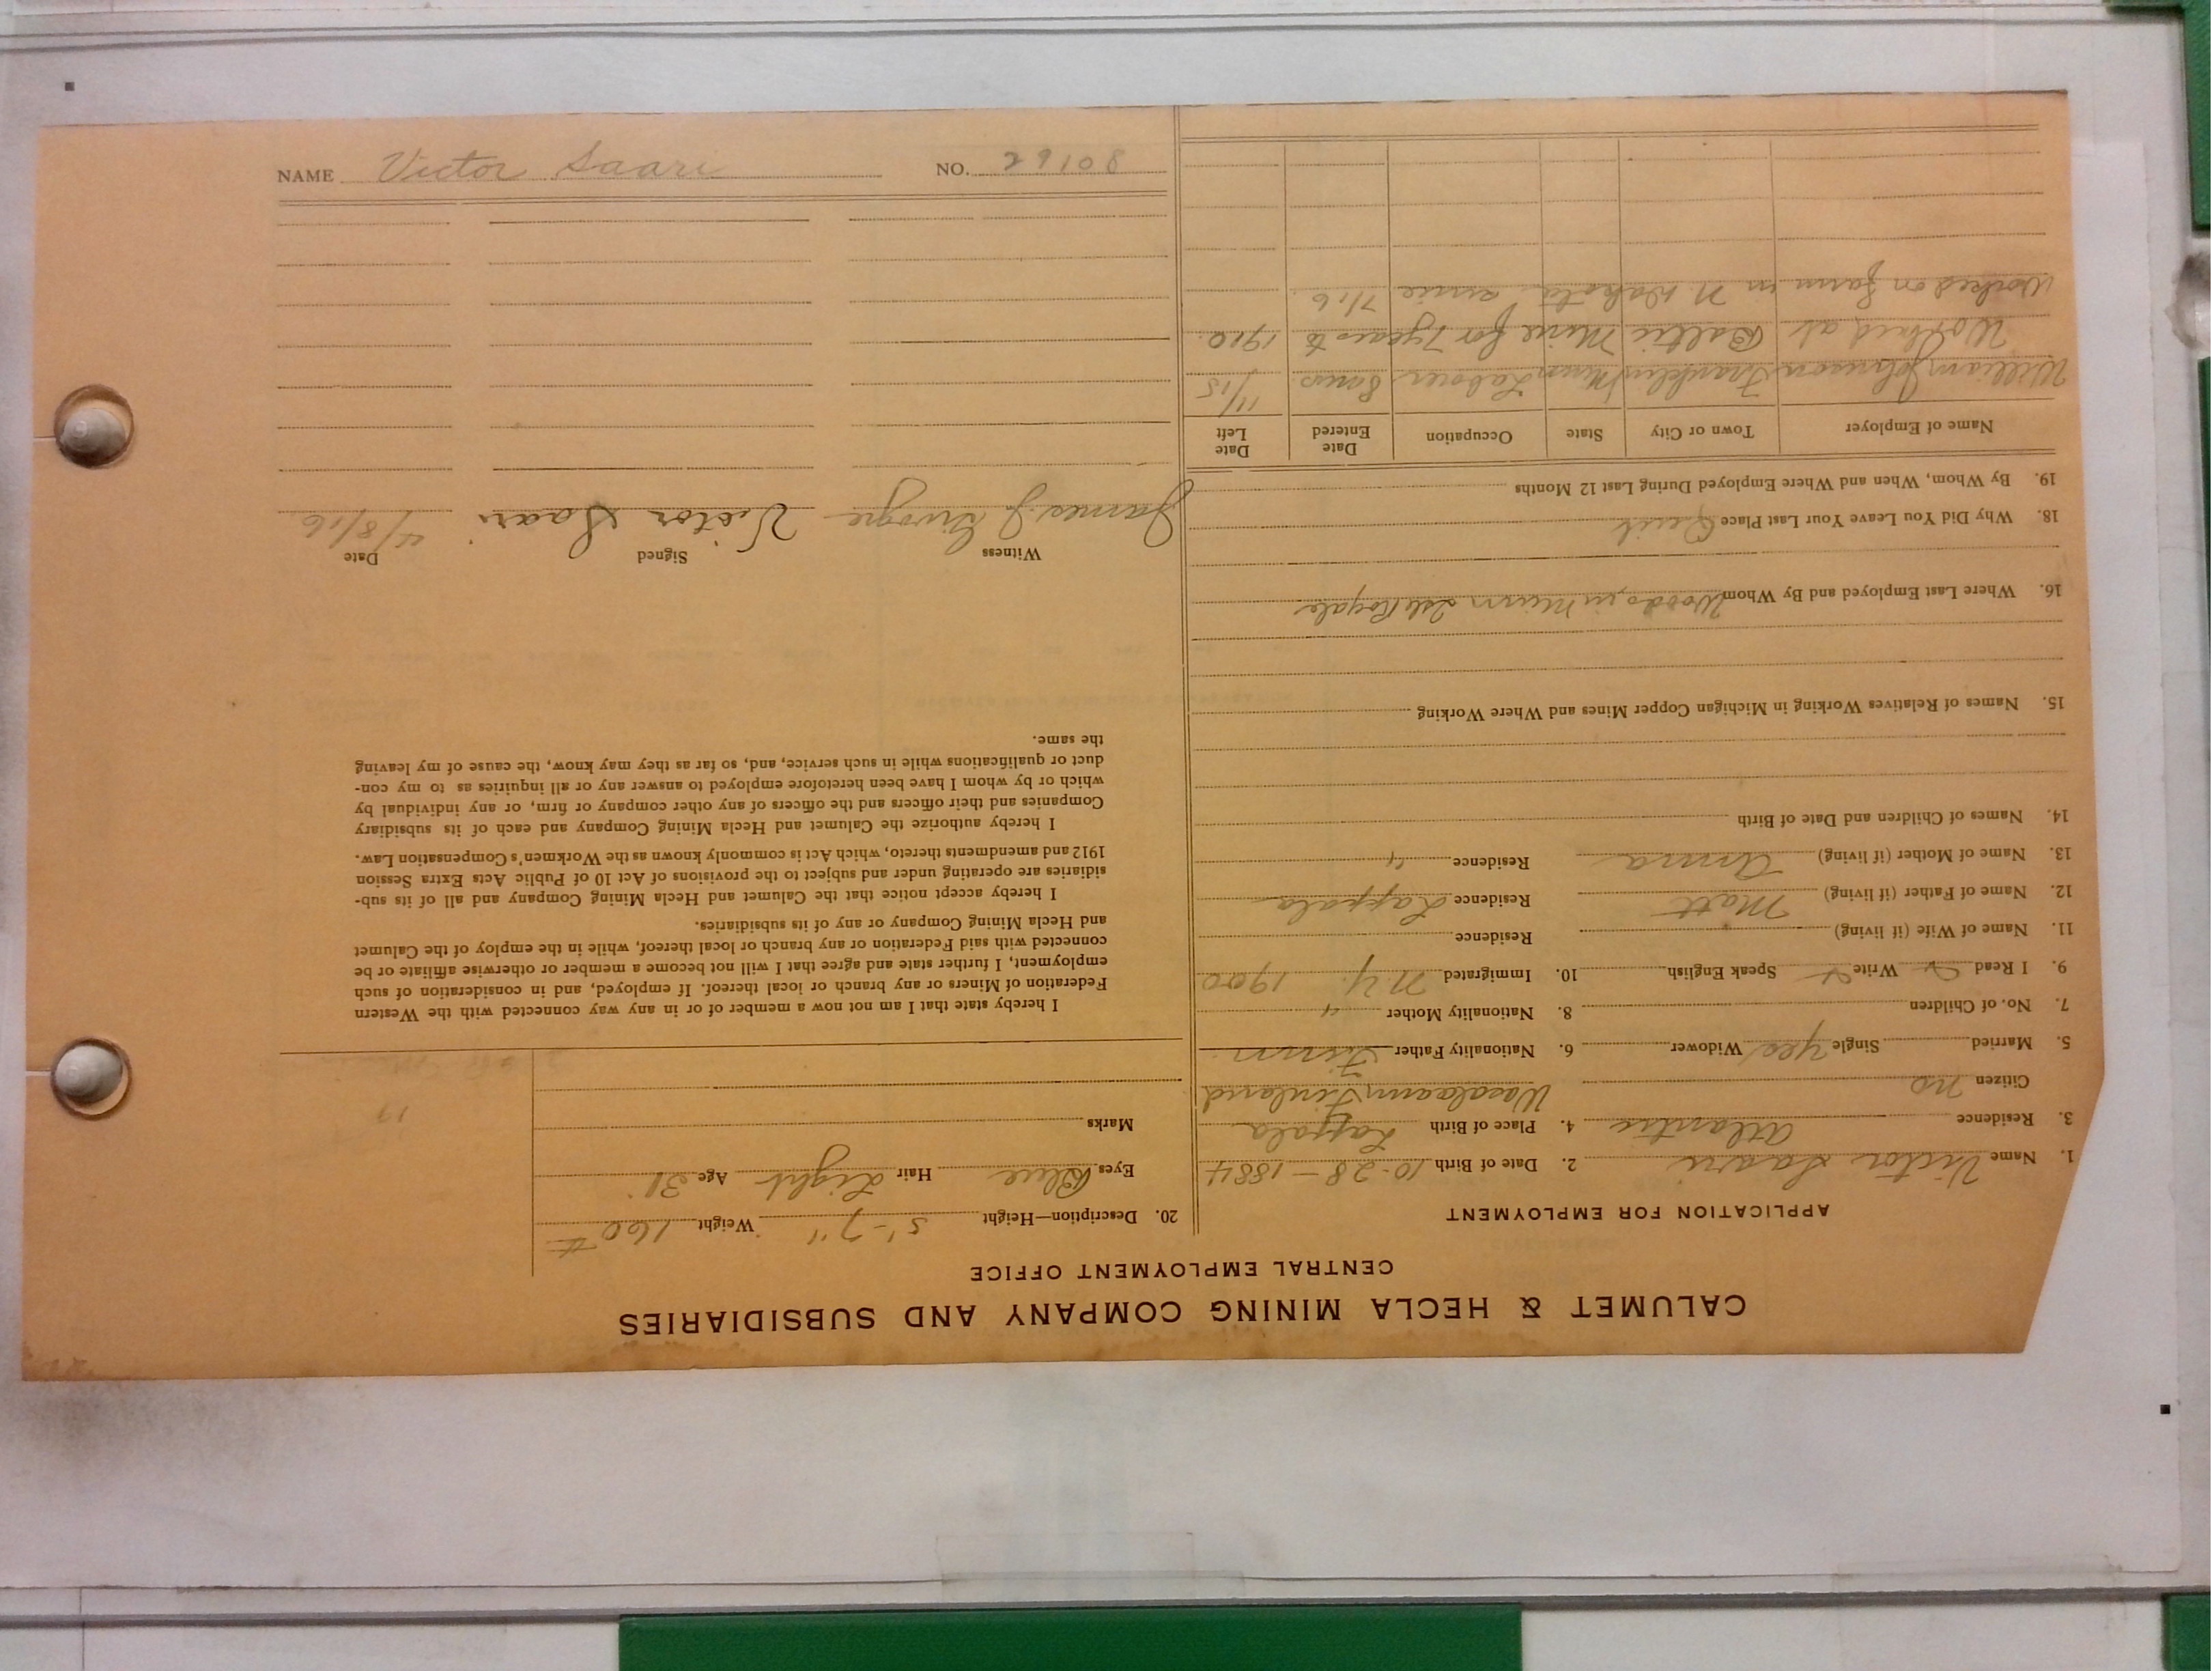 CALUMET & HECLA MINING COMPANY AND SUBSIDIARIES
CENTRAL EMPLOYMENT OFFICE
APPLICATION FOR EMPLOYMENT
1. Name Victor Saari 2. Date of Birth 10-28-1884
3. Residence Atlantic 4. Place of Birth Lappala
Citizen no Finland
5. Married Single yes Widower 6. Nationality Father Finn
7. No. of Children 8. Nationality Mother "
9. I Read Write Speak English 10. Immigrated N.Y. 1900
11. Name of Wife (if living) Residence
12. Name of Father (if living) Matt Residence Lappala
13. Name of Mother (if living) Anna Residence "
14. Names of Children and Date of Birth
15. Names of Relatives Working in Michigan Copper Mines and Where Working
16. Where Last Employed and By Whom Woods in Minn Isle Royale
18. Why Did You Leave Your Last Place Quit
19. By Whom, When and Where Employed During Last 12 Months
Name of Employer Town or City State Occupation Date Entered Date Left
William Johnson Franklin Minn Laborer 8 mos 11/15
Worked at Baltic Mine for 7 years to 1910
Worked on farm in N Dakota since 7/16
20. Description—Height 5'-7" Weight 160 #
Eyes Blue Hair Light Age 31
Marks
17
I hereby state that I am not now a member of or in any way connected with the Western
Federation of Miners or any branch or local thereof. If employed, and in consideration of such
employment, I further state and agree that I will not become a member or otherwise affiliate or be
connected with said Federation or any branch or local thereof, while in the employ of the Calumet
and Hecla Mining Company or any of its subsidiaries.
I hereby accept notice that the Calumet and Hecla Mining Company and all of its sub-
sidiaries are operating under and subject to the provisions of Act 10 of Public Acts Extra Session
1912 and amendments thereto, which Act is commonly known as the Workmen's Compensation Law.
I hereby authorize the Calumet and Hecla Mining Company and each of its subsidiary
Companies and their officers and the officers of any other company or firm, or any individual by
which or by whom I have been heretofore employed to answer any or all inquiries as to my con-
duct or qualifications while in such service, and, so far as they may know, the cause of my leaving
the same.
Witness Signed Date
James J Victor Saari 4/8/16
NAME Victor Saari NO. 29108